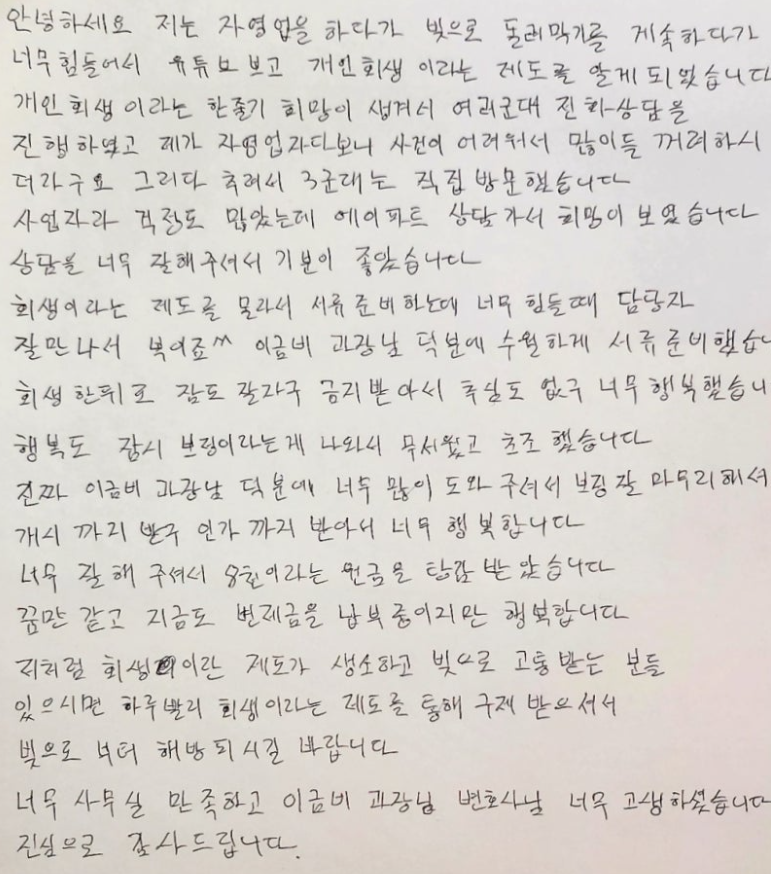 안녕하세요 저는 자영업을 하다가 빚으로 돌려막기를 계속하다가
너무힘들어서 유튜브보고 개인회생 이라는 제도를 알게 되었습니다
개인회생 이라는 한줄기 희망이 생겨서 여러군대 전화상담을
진행하였고 제가 자영업자다보니 사건이 어려워서 많이들 꺼려하시
더라구요 그러다 추려서 3군대는 직접 방문했습니다
사업자라 걱정도 많았는데 에이파트 상담가서 희망이 보였습니다
상담을 너무 잘해주셔서 기분이 좋았습니다
회생이라는 제도를 몰라서 서류준비하는데 너무 힘들때 담당자
잘만나서 복이죠^^ 이금비 과장님 덕분에 수월하게 서류준비했습니
회생한뒤로 잠도 잘자구 금지받아서 추심도 없구 너무행복했습니
행복도 잠시 보정이라는게 나와서 무서웠고 초조 했습니다
진짜 이금비 과장님 덕분에 너무 많이 도와 주셔서 보정잘 마무리해서
개시 까지 받구 인가 까지 받아서 너무 행복합니다
너무 잘해 주셔서 8천이라는 원금을 탕감 받았습니다
꿈만 같고 지금도 변제금을 납부중이지만 행복합니다
저처럼 회생이란 제도가 생소하고 빚으로 고통받는 분들
있으시면 하루빨리 회생이라는 제도를 통해 구제 받으셔서
빚으로 부터 해방되시길 바랍니다
너무 사무실 만족하고 이금비 과장님 변호사님 너무 고생하셨습니다
진심으로 감사드립니다.